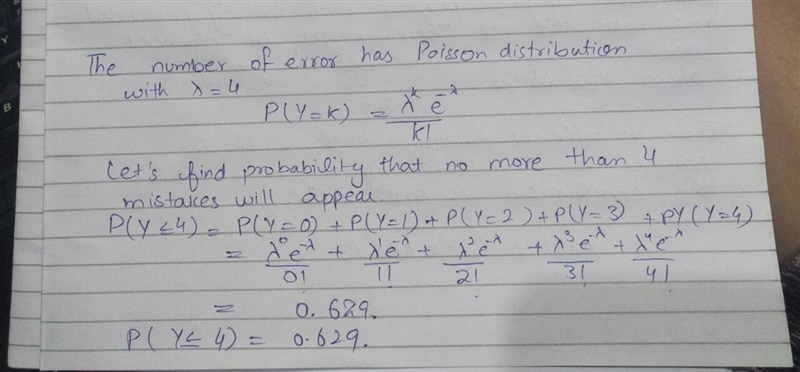 The number of error has Poisson distribution
with λ = 4
P(Y=k) = λ^k e^-λ / k!
Let's find probability that no more than 4
mistakes will appear.
P(Y≤4) = P(Y=0) + P(Y=1) + P(Y=2) + P(Y=3) + PY(Y=4)
= λ^0 e^-λ / 0! + λ^1 e^-λ / 1! + λ^2 e^-λ / 2! + λ^3 e^-λ / 3! + λ^4 e^-λ / 4!
= 0.629.
P(Y≤ 4) = 0.629.